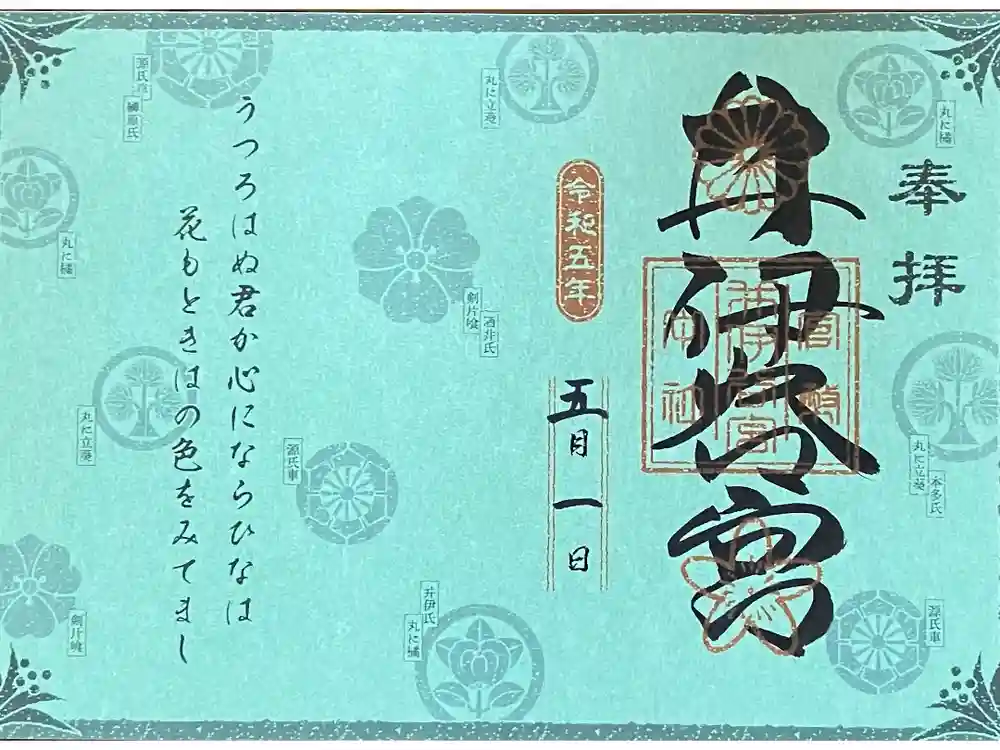 奉拝
井伊谷宮
官幣
井伊谷宮
中社
令和五年
五月一日
うつろはぬ君か心にならひなは
花もときはの色をみてまし
丸に橘
丸に立葵
源氏車
榊原氏
丸に橘
剣片喰
酒井氏
丸に立葵
源氏車
丸に立葵
本多氏
井伊氏
丸に橘
剣片喰
源氏車